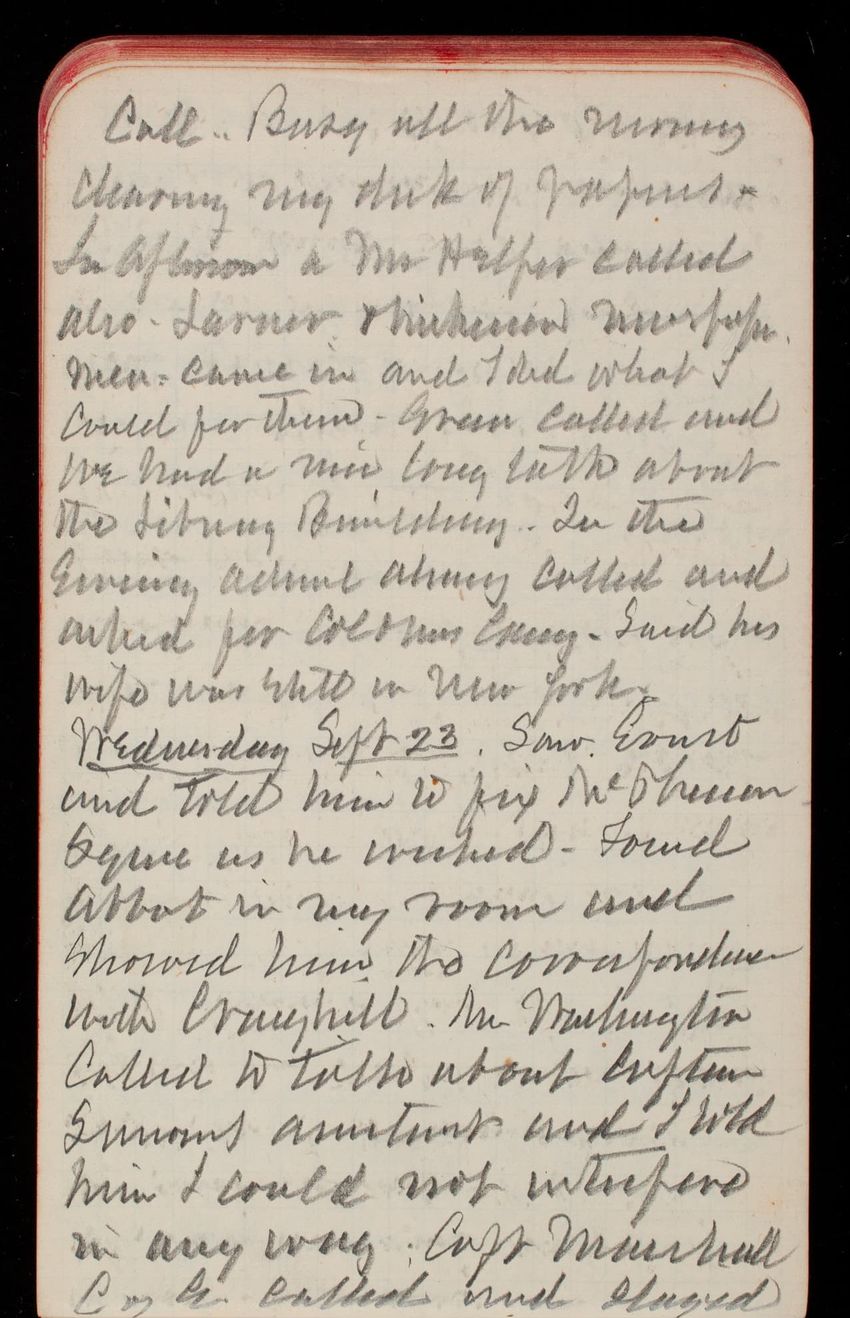 Call.. Busy all the morning
clearing my desk of papers -
In Afternoon a Mr Halfor called
also - Larner newspaper
men - came in and I did what I
could for them - Green called and
We had a nice long talk about
the Library Building. In the
Evening called and
asked for Colonel Casey - Said his
wife was still in New York.
Wednesday Sept 23. Saw Ernst
and told him to fix
as he wished - Found
Abbot in my room and
showed him the correspondence
with Craighill. Mr Washington
Called to talk about Captain
Symons assistant and I told
him I could not interfere
in any way. Capt Marshall
C of E. called and stayed